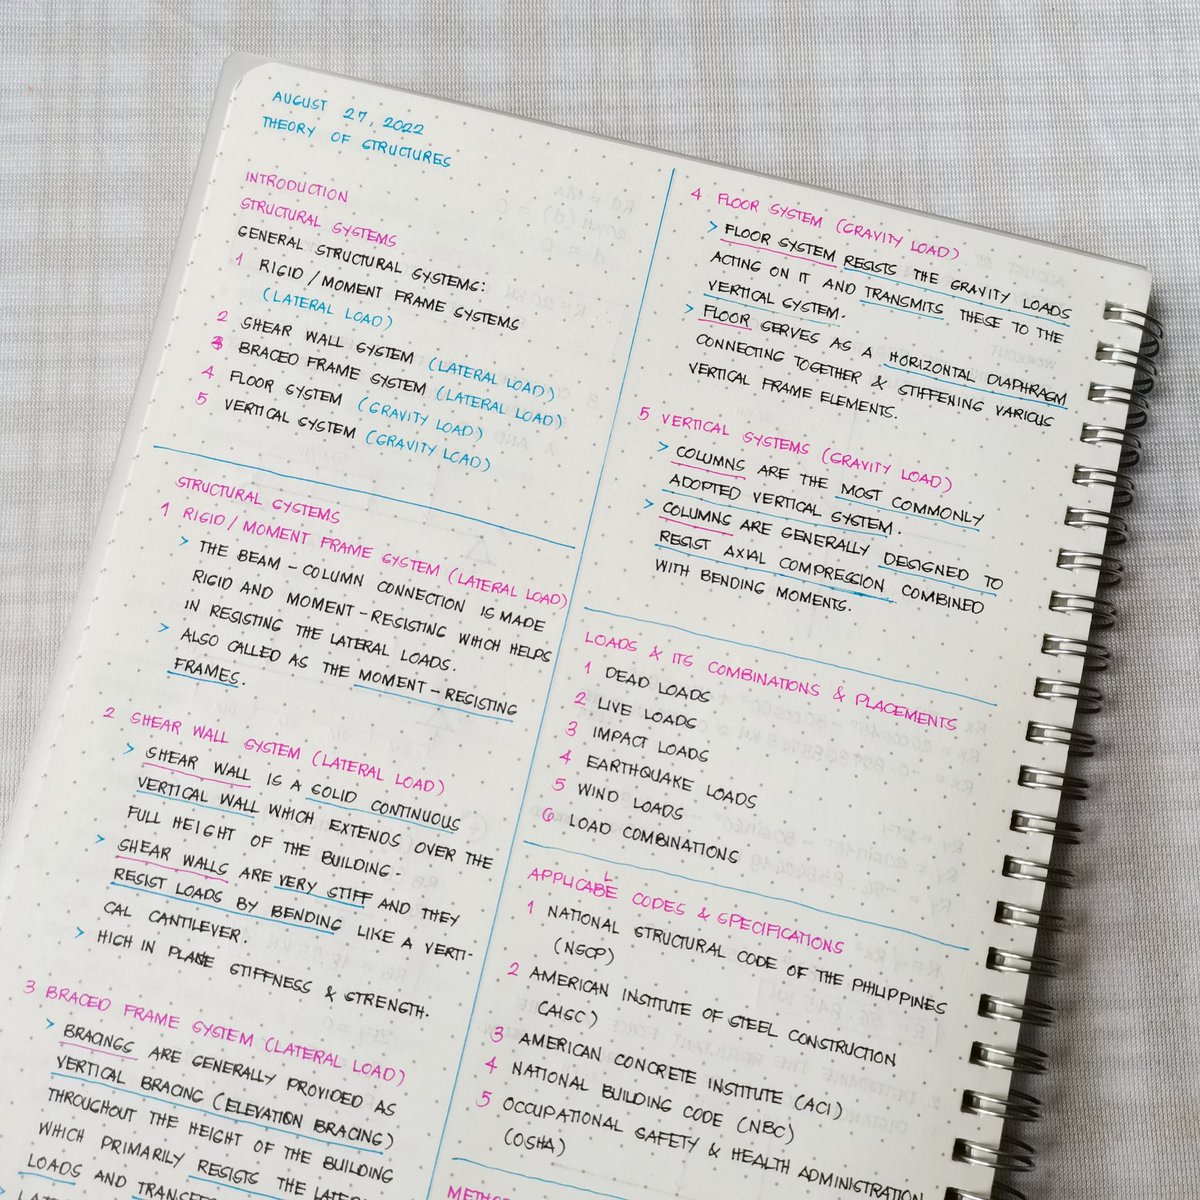 AUGUST 27, 2022
THEORY OF STRUCTURES
INTRODUCTION
STRUCTURAL SYSTEMS
GENERAL STRUCTURAL SYSTEMS:
1 RIGID / MOMENT FRAME SYSTEMS
(LATERAL LOAD)
2 SHEAR WALL SYSTEM (LATERAL LOAD)
3 BRACED FRAME SYSTEM (LATERAL LOAD)
4 FLOOR SYSTEM (GRAVITY LOAD)
5 VERTICAL SYSTEM (GRAVITY LOAD)
STRUCTURAL SYSTEMS
1 RIGID / MOMENT FRAME SYSTEM (LATERAL LOAD)
> THE BEAM - COLUMN CONNECTION IS MADE
RIGID AND MOMENT - RESISTING WHICH HELPS
IN RESISTING THE LATERAL LOADS.
> ALSO CALLED AS THE MOMENT - RESISTING
FRAMES.
2 SHEAR WALL SYSTEM (LATERAL LOAD)
> SHEAR WALL IS A SOLID CONTINUOUS
VERTICAL WALL WHICH EXTENDS OVER THE
FULL HEIGHT OF THE BUILDING.
> SHEAR WALLS ARE VERY STIFF AND THEY
RESIST LOADS BY BENDING LIKE A VERTI-
CAL CANTILEVER.
> HIGH IN PLANE STIFFNESS & STRENGTH.
3 BRACED FRAME SYSTEM (LATERAL LOAD)
> BRACINGS ARE GENERALLY PROVIDED AS
VERTICAL BRACING (ELEVATION BRACING)
THROUGHOUT THE HEIGHT OF THE BUILDING
WHICH PRIMARILY RESISTS THE
LOADS AND
4 FLOOR SYSTEM (GRAVITY LOAD)
> FLOOR SYSTEM RESISTS THE GRAVITY LOADS
ACTING ON IT AND TRANSMITS THESE TO THE
VERTICAL SYSTEM.
> FLOOR SERVES AS A HORIZONTAL DIAPHRAGM
CONNECTING TOGETHER & STIFFENING VARIOUS
VERTICAL FRAME ELEMENTS.
5 VERTICAL SYSTEMS (GRAVITY LOAD)
> COLUMNS ARE THE MOST COMMONLY
ADOPTED VERTICAL SYSTEM.
> COLUMNS ARE GENERALLY DESIGNED TO
RESIST AXIAL COMPRESSION COMBINED
WITH BENDING MOMENTS.
LOADS & ITS COMBINATIONS & PLACEMENTS
1 DEAD LOADS
2 LIVE LOADS
3 IMPACT LOADS
4 EARTHQUAKE LOADS
5 WIND LOADS
6 LOAD COMBINATIONS
APPLICABLE CODES & SPECIFICATIONS
1 NATIONAL STRUCTURAL CODE OF THE PHILIPPINES
(NSCP)
2 AMERICAN INSTITUTE OF STEEL CONSTRUCTION
(AISC)
3 AMERICAN CONCRETE INSTITUTE (ACI)
4 NATIONAL BUILDING CODE (NBC)
5 OCCUPATIONAL SAFETY & HEALTH ADMINISTRATION
(OSHA)